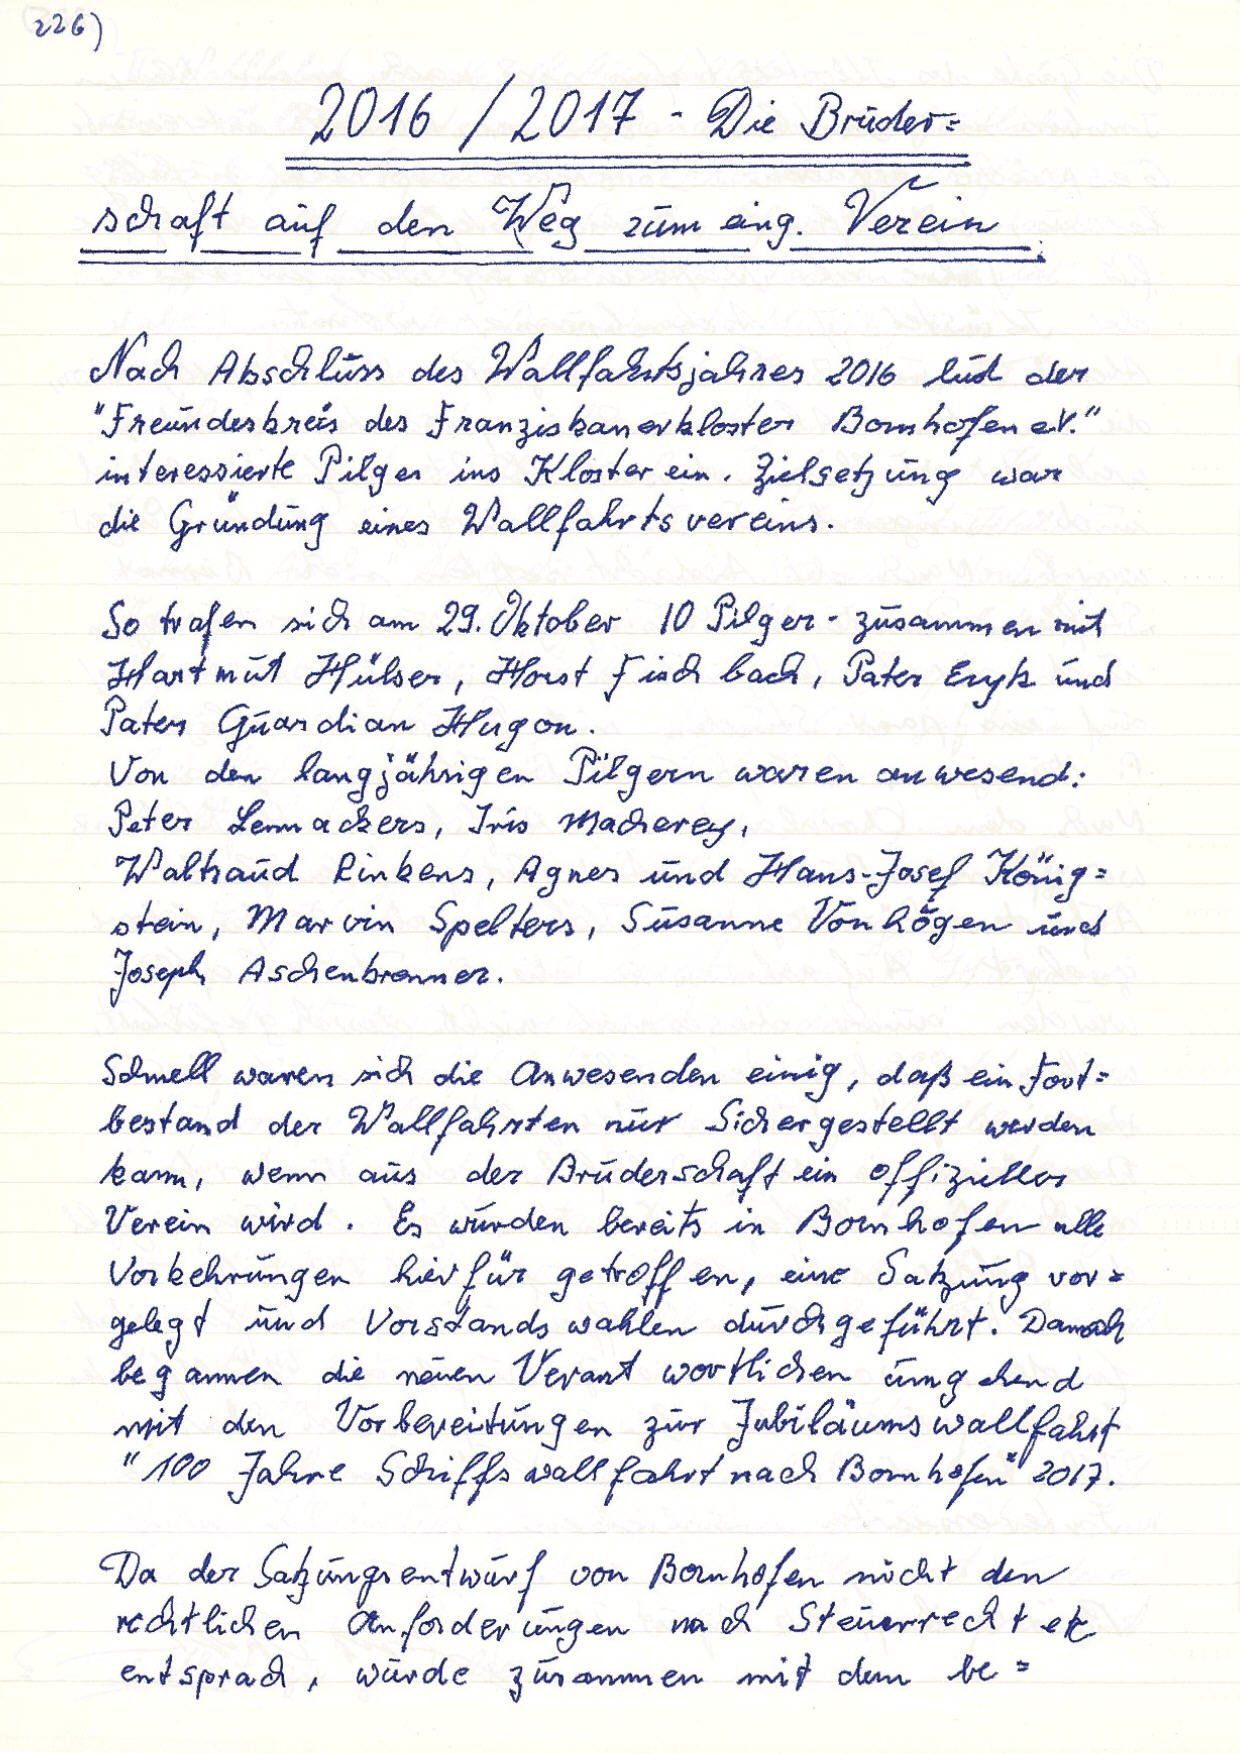 226)
2016 / 2017 - Die Brüder=
schaft auf den Weg zum eing. Verein.
Nach Abschluss des Wallfahrtsjahres 2016 lud der
"Freundeskreis des Franziskanerkloster Bornhofen e.V."
interessierte Pilger ins Kloster ein. Zielsetzung war
die Gründung eines Wallfahrtsvereins.
So trafen sich am 29. Oktober 10 Pilger - zusammen mit
Hartmut Hülser, Horst Fischbach, Pater Eryk und
Pater Guardian Hugon.
Von den langjährigen Pilgern waren anwesend:
Peter Lennackers, Iris Macherey,
Waltraud Rinkens, Agnes und Hans-Josef König=
stein, Marvin Spelters, Susanne Vonhögen und
Joseph Aschenbrenner.
Schnell waren sich die Anwesenden einig, daß ein Fort=
bestand der Wallfahrten nur Sichergestellt werden
kann, wenn aus der Brüderschaft ein offizieller
Verein wird. Es wurden bereits in Bornhofen alle
Vorkehrungen hierfür getroffen, eine Satzung vor=
gelegt und Vorstandswahlen durchgeführt. Danach
begannen die neuen Verantwortlichen umgehend
mit den Vorbereitungen zur Jubiläumswallfahrt
"100 Jahre Schiffswallfahrt nach Bornhofen" 2017.
Da der Satzungsentwurf von Bornhofen nicht den
rechtlichen Anforderungen nach Steuerrecht etc
entsprach, wurde zusammen mit dem be=